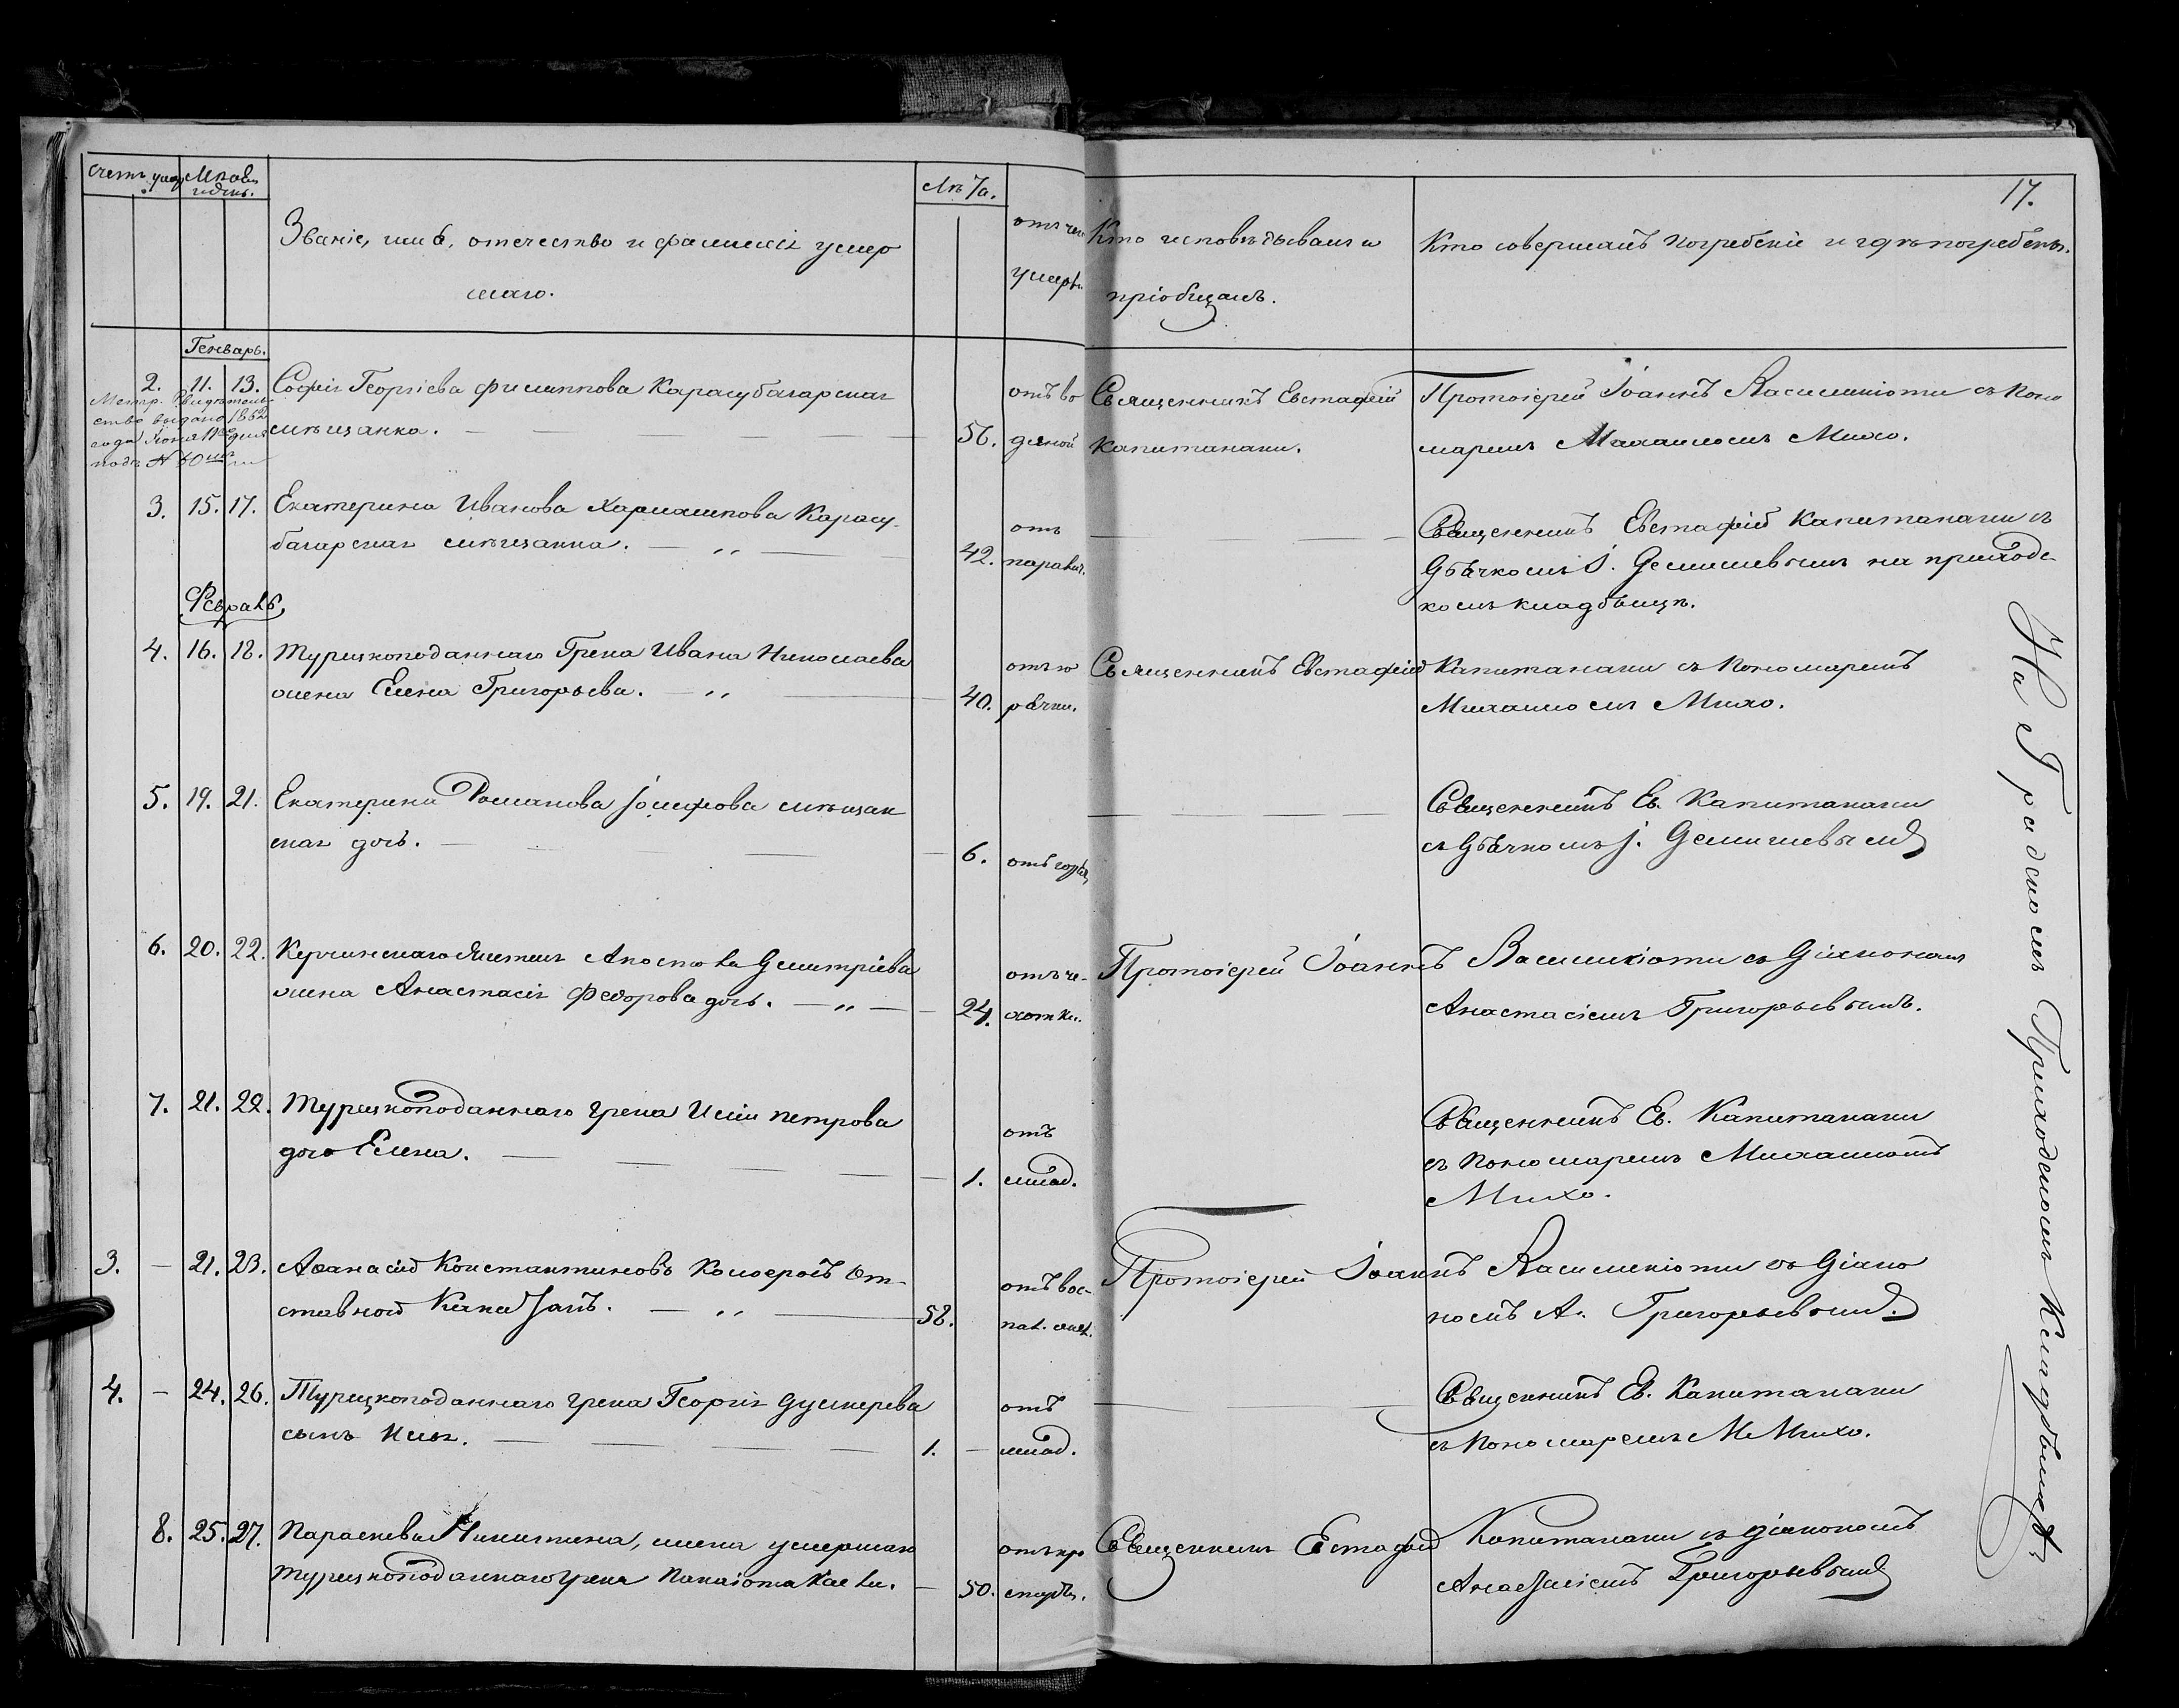 Счетъ умер.
Мѣсяцъ и день.
Званіе, имя, отечество и фамилія умер
шаго.
Лѣта.
отъ чего
умеръ.
Кто исповѣдывалъ и
пріобщалъ.
Кто совершалъ погребеніе и гдѣ погребены.
17.
Генварь.
2. 11. 13. Софія Георгіева Филиппова Карасубагарская
мѣщанка.
56.
отъ во
дяной
Священникъ Евстафій
Капитанаки.
Протоіерей Іоаннъ Василикіоти съ Поно
маремъ Михаиломъ Михо.
Метр. Свидѣтель-
ство выдано 1862
года Іюня
подъ N 60
3. 15. 17. Екатерина Иванова Харлампова Карасу-
багарская мѣщанка.
42.
отъ
паралич.
Священникъ Евстафій Капитанаки съ
Дьячкомъ І. Демишевымъ на приходс-
комъ кладбищѣ.
Февраль
4. 16. 18. Турецкоподаннаго Грека Ивана Николаева
жена Елена Григорьева.
40.
отъ го
рячки.
Священникъ Евстафій Капитанаки съ Пономаремъ
Михаиломъ Михо.
5. 19. 21. Екатерина Романова Іосифова мѣщан
ская дочь.
6.
отъ
Священникъ Ев. Капитанаки
съ Дьячкомъ І. Демишевымъ
6. 20. 22. Керчинскаго жителя Апостола Дмитріева
жена Анастасія Федорова дочь.
24.
отъ ча-
хотки.
Протоіерей Іоаннъ Василикіоти съ Діакономъ
Анастасіемъ Григорьевымъ.
7. 21. 22. Турецкоподаннаго грека Иліи Петрова
дочь Елена.
1.
отъ
млад.
Священникъ Ев. Капитанаки
съ Пономаремъ Михаиломъ
Михо.
3. 21. 23. Афанасій Константиновъ От
ставной Капитанъ.
58.
отъ вос-
пал.
Протоіерей Іоаннъ Василикіоти съ Діако
номъ А. Григорьевымъ.
4. 24. 26. Турецкоподаннаго грека Георгія
сынъ Илья.
1.
отъ
млад.
Священникъ Ев. Капитанаки
съ Пономаремъ М Михо.
8. 25. 27. Параскева Никитина, жена умершаго
турецкоподаннаго грека Панаіота
50.
отъ про
студы.
Священникъ Евстафій Капитанаки съ діакономъ
Анастасіемъ Григорьевымъ
На Градскомъ Приходскомъ Кладбищѣ